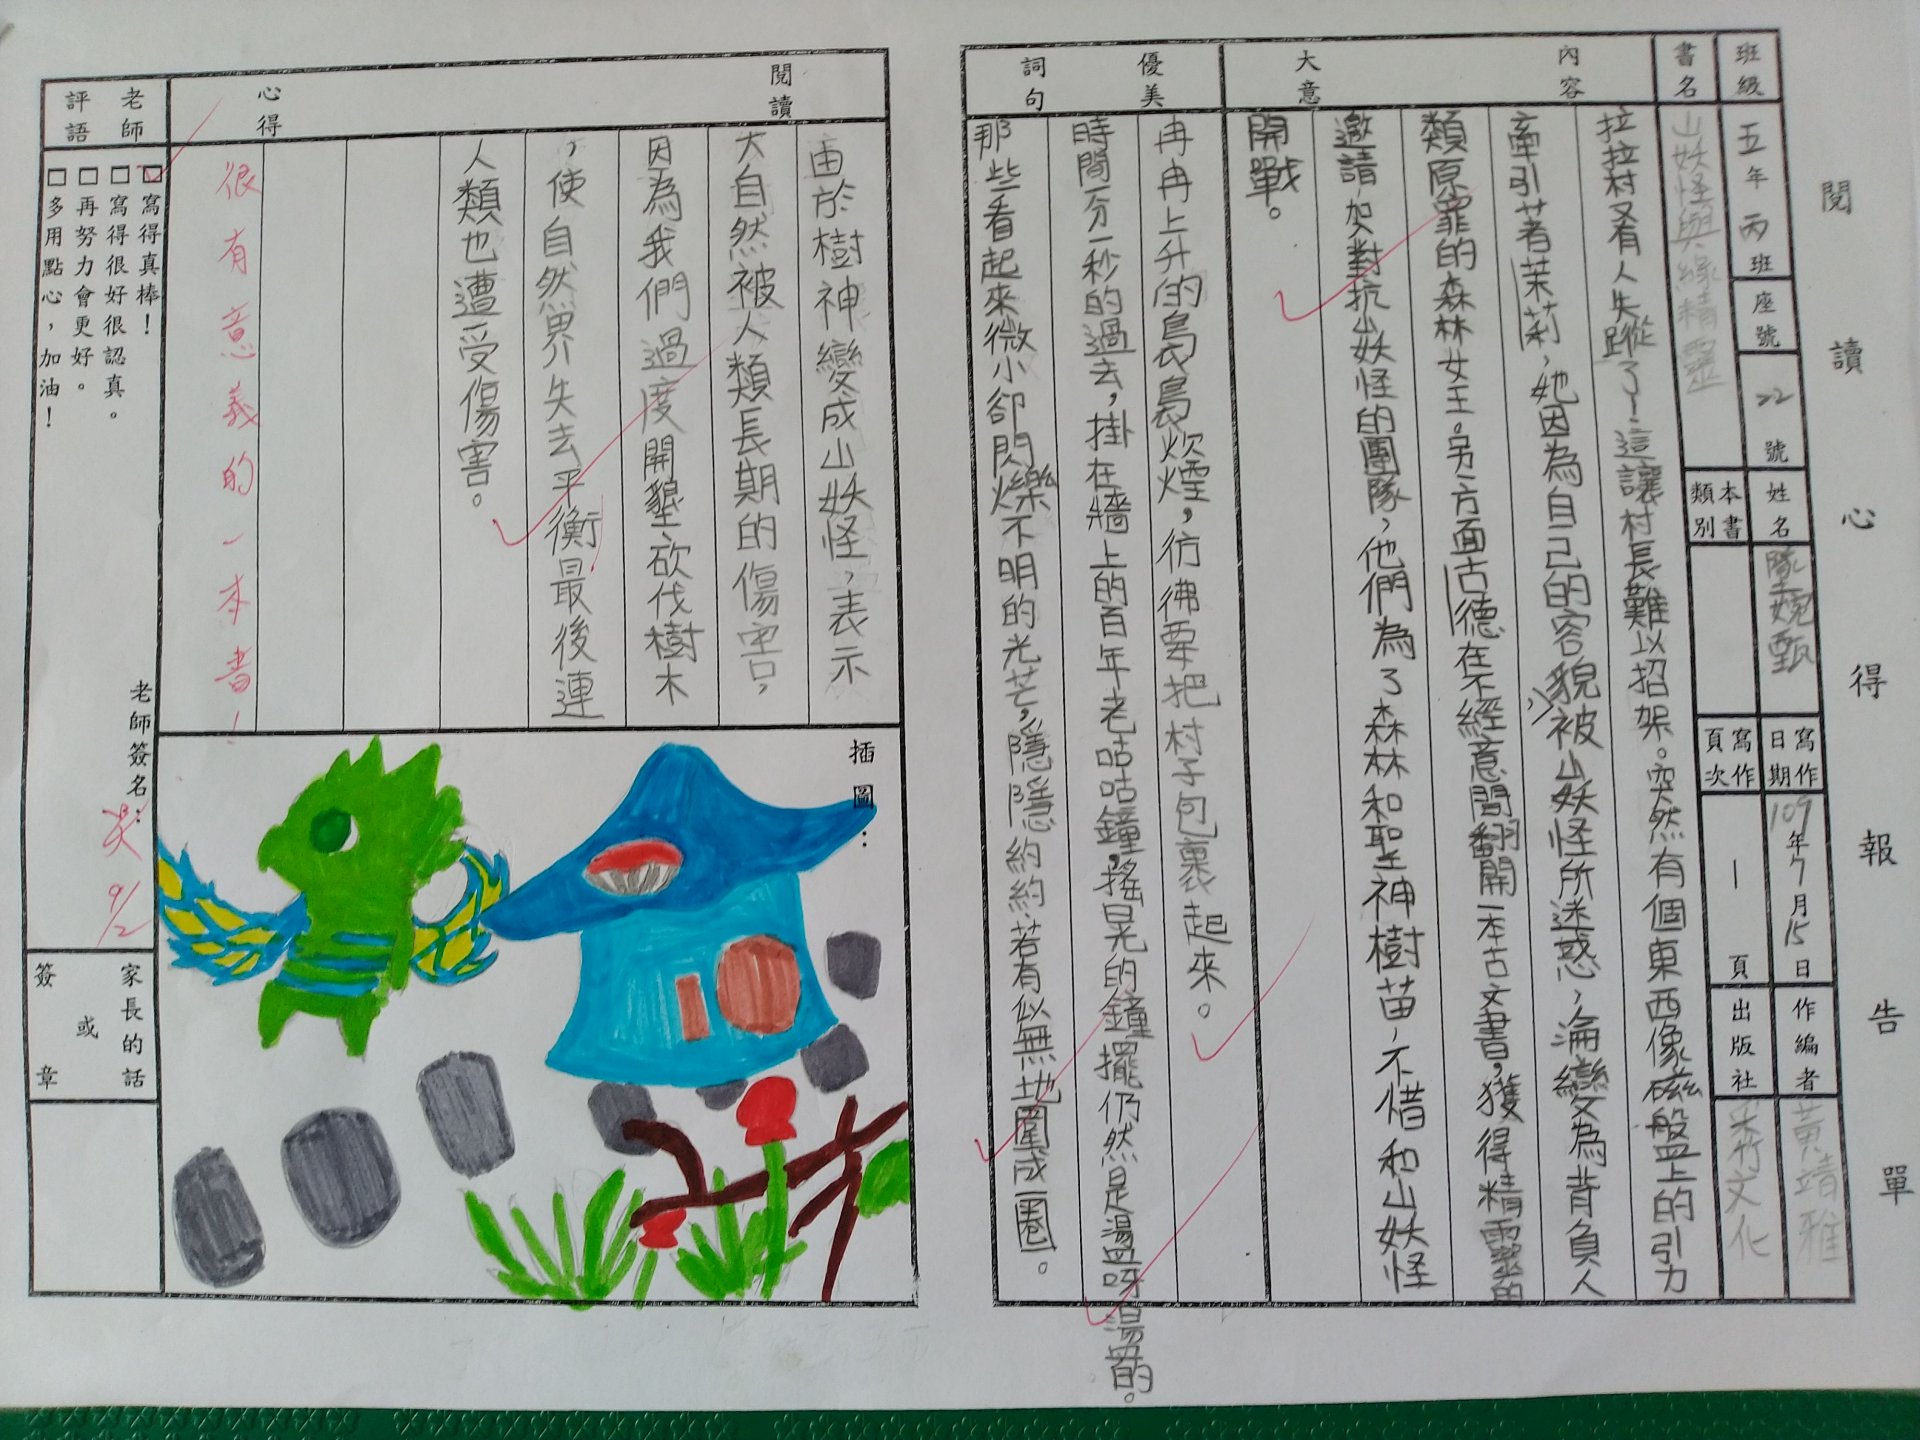 閱讀心得報告單
班級 五年丙班 座號 22號 姓名 陳婉甄 寫作日期 109年7月15日 作編者 黃靖雅
書名 山妖怪與綠精靈 本書類別 寫作頁次 一頁 出版社 采竹文化
內容大意
拉拉村又有人失蹤了!這讓村長難以招架。突然有個東西像磁盤上的引力
牽引著茉莉,她因為自己的容貌被山妖怪所迷惑,淪變為背負人
類原罪的森林女王。另一方面古德在不經意間翻開一本古文書,獲得精靈的
邀請,加對抗山妖怪的團隊,他們為了森林和聖神樹苗,不惜和山妖怪
開戰。
優美詞句
冉冉上升的裊裊炊煙,彷彿要把村子包裹起來。
時間一分一秒的過去,掛在牆上的百年老咕咕鐘,搖晃的鐘擺仍然是盪呀盪的。
那些看起來微小卻閃爍不明的光芒,隱隱約約若有似無地圍成一圈。
閱讀心得
由於樹神變成山妖怪,表示
大自然被人類長期的傷害,
因為我們過度開墾、砍伐樹木
,使自然界失去平衡最後連
人類也遭受傷害。
很有意義的一本書!
插圖:
老師評語
□寫得真棒!
□寫得很好很認真。
□再努力會更好。
□多用點心,加油!
老師簽名: 吳 9/2
家長的話或簽章